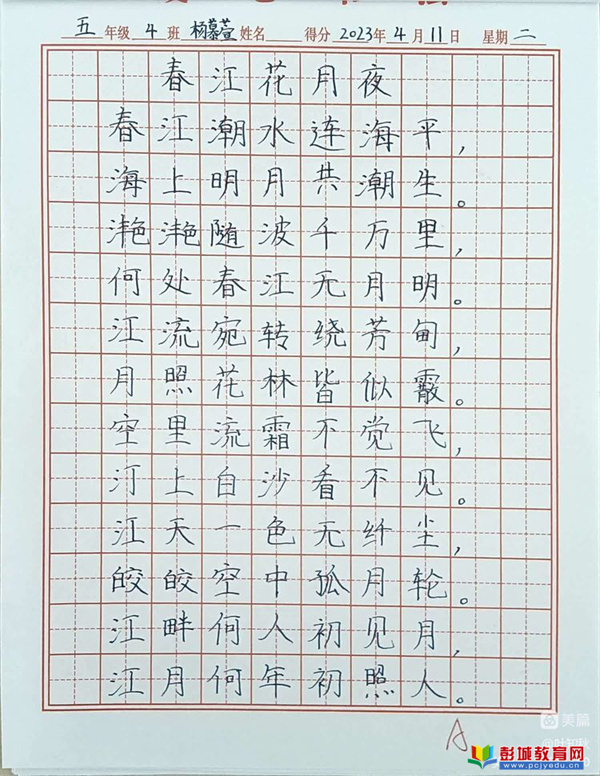 五年级 4班 杨慕萱姓名 得分 2023年4月11日 星期二
春江花月夜
春江潮水连海平,
海上明月共潮生。
滟滟随波千万里,
何处春江无月明。
江流宛转绕芳甸,
月照花林皆似霰。
空里流霜不觉飞,
汀上白沙看不见。
江天一色无纤尘,
皎皎空中孤月轮。
江畔何人初见月,
江月何年初照人。
A
美篇
彭城教育网
www.pcjyedu.com